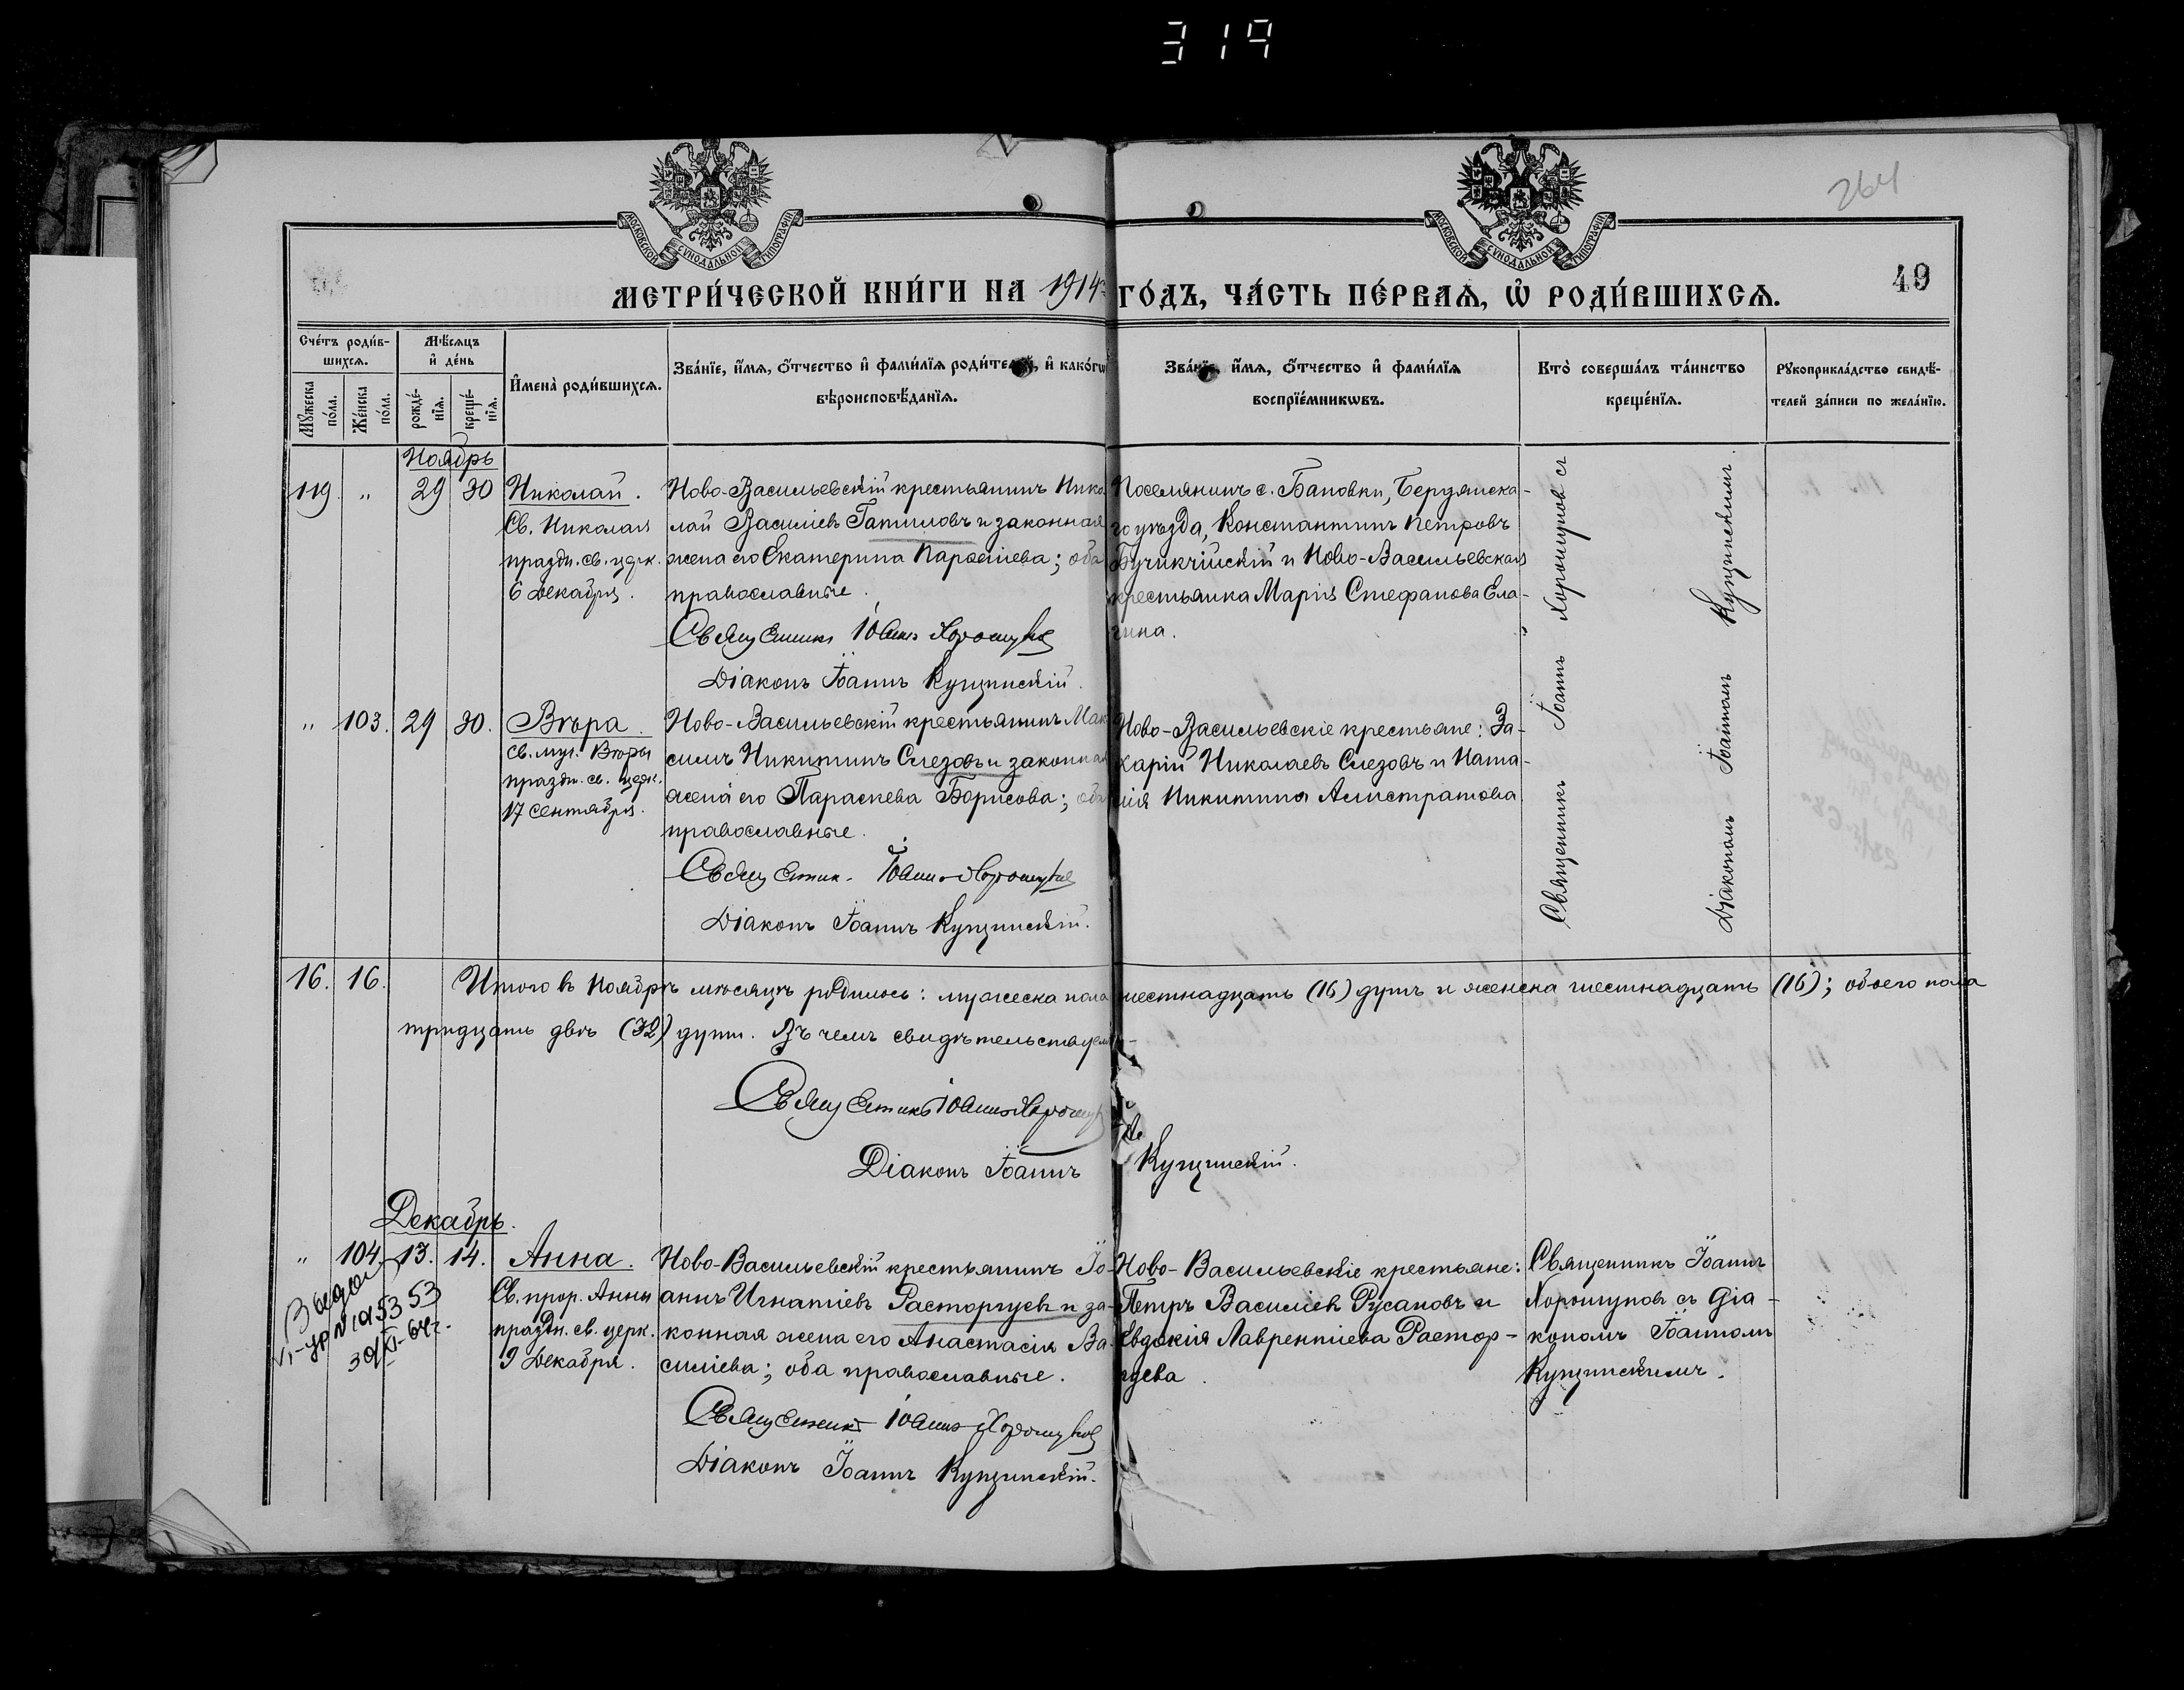 319
264
МОСКОВСКОЙ СѴНОДАЛЬНОЙ ТИПОГРАФІИ
МОСКОВСКОЙ СѴНОДАЛЬНОЙ ТИПОГРАФІИ
49
МЕТРИ́ЧЕСКОЙ КНИ́ГИ НА 1914 ГО́ДЪ, ЧА́СТЬ ПЕ́РВАѦ, Ѡ РОДИ́ВШИХСѦ.
Сче́тъ роди́в-
шихсѧ.
Мꙋжеска
по́ла.
Же́нска
по́ла.
Мѣ́сѧцъ
и҆ де́нь
рожде́-
нїѧ.
креще́-
нїѧ.
И҆мена̀ роди́вшихсѧ.
Зва́нїе, и҆́мѧ, ѻ҆́тчество и҆ фами́лїѧ роди́телей, и҆ како́гѡ
вѣроисповѣ́данїѧ.
Зва́нїе, и҆́мѧ, ѻ҆́тчество и҆ фами́лїѧ
воспрїе́мникѡвъ.
Кто̀ соверша́лъ та́инство
креще́нїѧ.
Рꙋкоприкла́дство свидѣ́-
телей за́писи по жела́нїю.
Ноябрь
119. " 29 30 Николай.
Св. Николая
праздн. св. церк.
6 Декабря.
Ново-Васильевскій крестьянинъ Нико-
лай Василіевъ Гатиловъ и законная
жена его Екатерина Парѳеніева; оба
православные.
Священникъ Іоаннъ Хорошуновъ
Діаконъ Іоаннъ Кущинскій.
Поселянинъ с. Бановки, Бердянска-
го уѣзда, Константинъ Петровъ
и Ново-Васильевская
крестьянка Марія Стефанова Ела-
гина.
Священникъ Іоаннъ Хорошуновъ съ
Діакономъ Іоанномъ Кущинскимъ.
" 103. 29 30. Вѣра.
Св. муч. Вѣры
праздн. св. церк.
17 Сентября.
Ново-Васильевскій крестьянинъ Мак-
симъ Никитинъ Слезовъ и законная
жена его Параскева Борисова; оба
православные.
Священник. Іоаннъ Хорошуновъ
Діаконъ Іоаннъ Кущинскій.
Ново-Васильевскіе крестьяне: За-
харій Николаевъ Слезовъ и Ната-
лія Никитина Алистратова
16. 16. Итого въ Ноябрѣ мѣсяцѣ родилось: мужеска пола шестнадцать (16) душъ и женска шестнадцать (16); обоего пола
тридцать двѣ (32) души. Въ чемъ свидѣтельствуемъ-
Священникъ Іоаннъ Хорошуновъ
Діаконъ Іоаннъ Кущинскій.
Декабрь.
" 104. 13. 14. Анна.
Св. прор. Анны
праздн. св. церк.
9 Декабря.
Ново-Васильевскій крестьянинъ Іо-
аннъ Игнатіевъ Расторгуевъ и за-
конная жена его Анастасія Ва-
силіева; оба православные.
Священникъ Іоаннъ Хорошуновъ
Діаконъ Іоаннъ Кущинскій.
Ново-Васильевскіе крестьяне:
Петръ Василіевъ Русановъ и
Евдокія Лаврентіева Растор-
гуева.
Священникъ Іоаннъ
Хорошуновъ съ Діа-
кономъ Іоанномъ
Кущинскимъ.